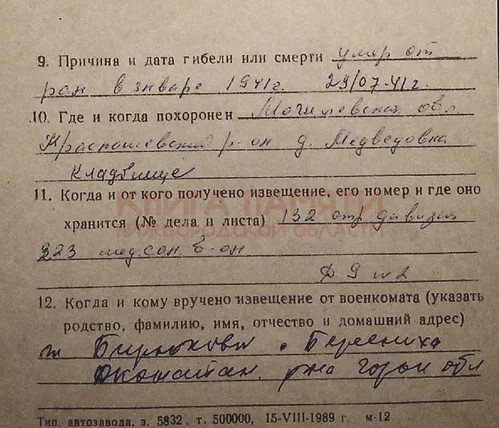 9. Причина и дата гибели или смерти умер от
ран в январе 1941г. 29/07-41г.
10. Где и когда похоронен Могилевская обл
Красношевский р-он д. Медведовка
Кладбище
11. Когда и от кого получено извещение, его номер и где оно
хранится (№ дела и листа) 132 стр дивизия
223 медсан б-он
Д 9 л 2
КНИГА ПАМЯТИ
НИЖЕГОРОДСКОЙ ОБЛАСТИ
12. Когда и кому вручено извещение от военкомата (указать
родство, фамилию, имя, отчество и домашний адрес)
Бирюкова
р-на обл
Тип. автозавода, з. 5832, т. 500000, 15-VIII-1989 г. м-12